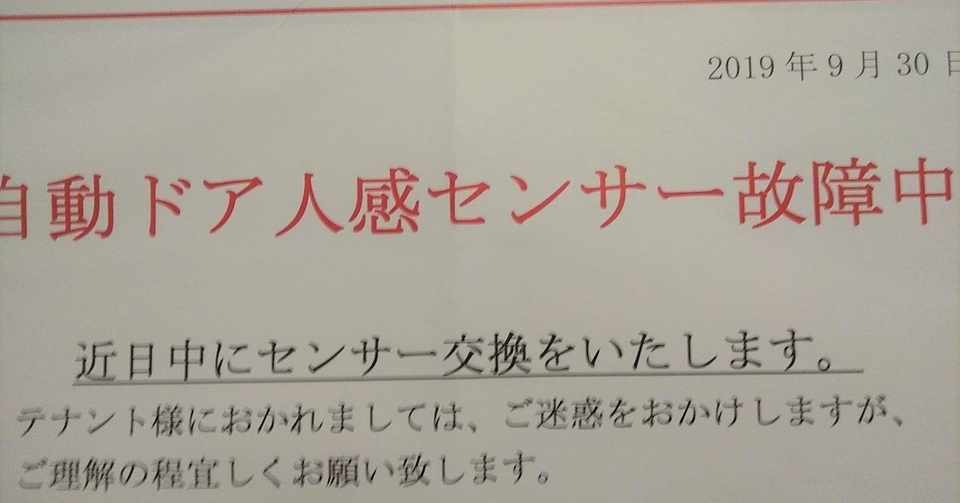 2019年9月30日
自動ドア人感センサー故障中
近日中にセンサー交換をいたします。
テナント様におかれましては、ご迷惑をおかけしますが、
ご理解の程宜しくお願い致します。